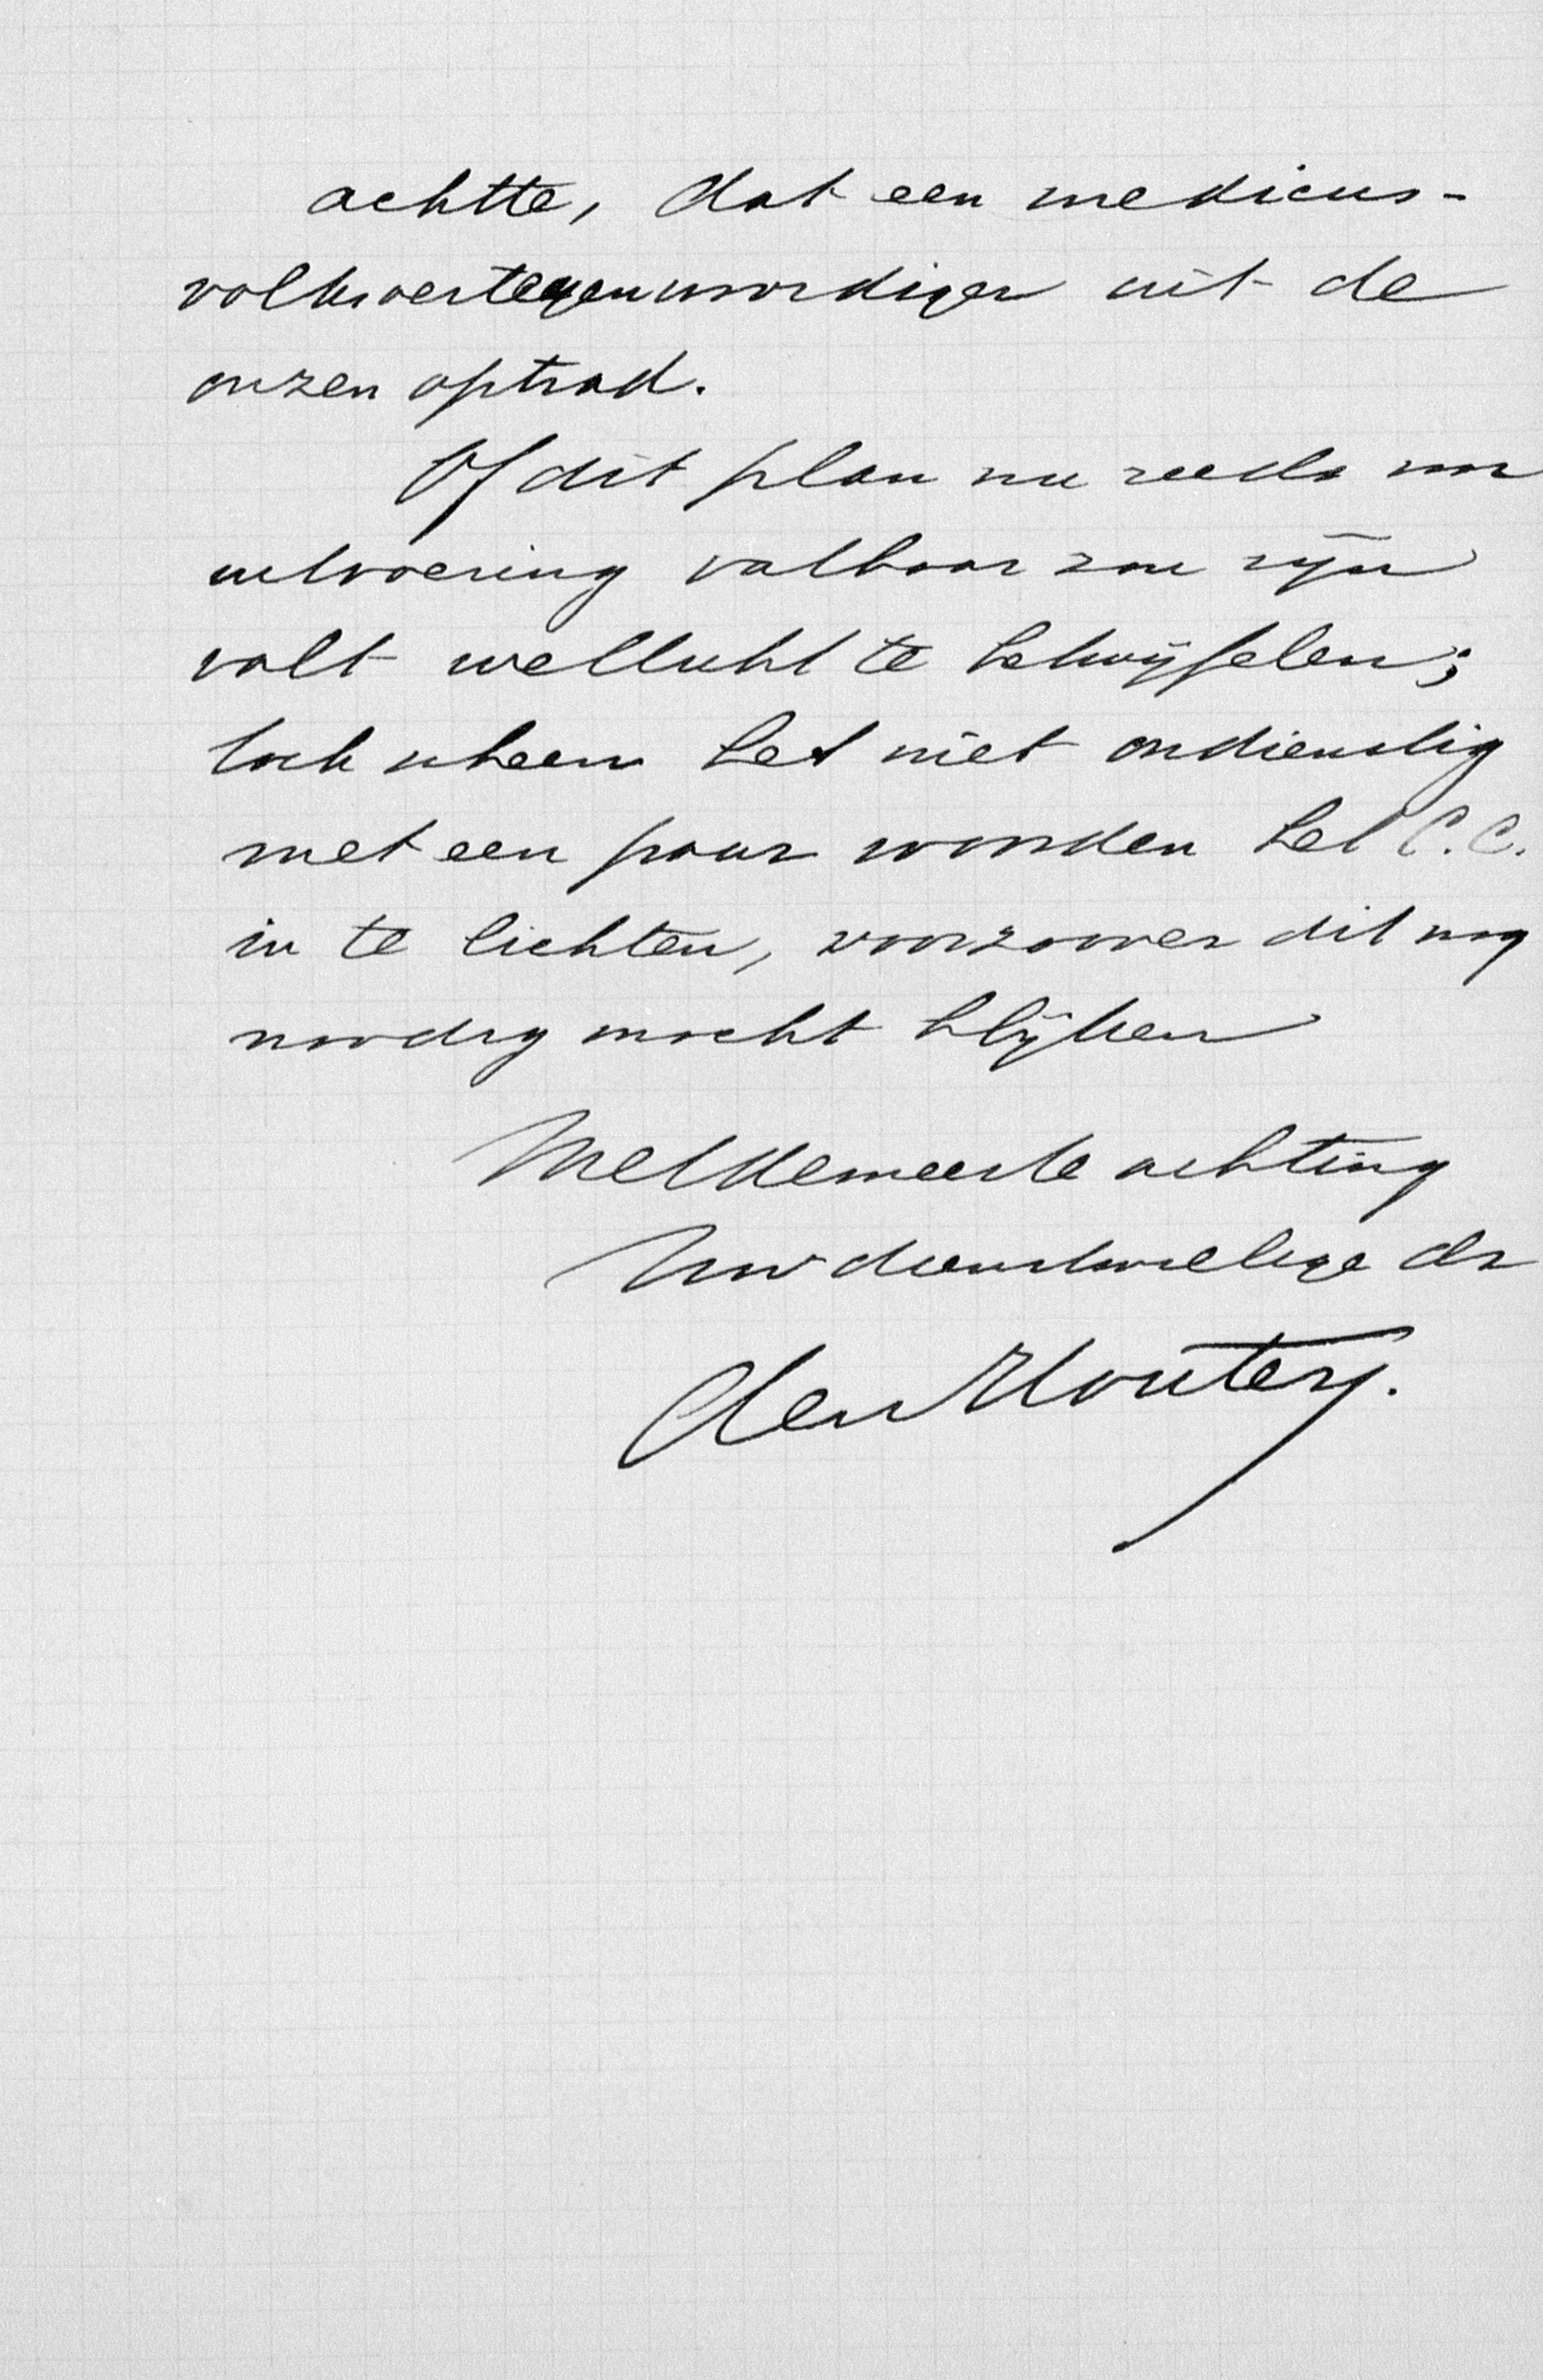 achtte, dat een medicus-
volksvertegenwoordiger uit de
onzen optrad.
Of dit plan nu reeds voor
uitvoering vatbaar zou zijn
valt wellicht te betwijfelen;
toch scheen het niet ondienstig
met een paar woorden het C.C.
in te lichten, voorzoover dit nog
noodig mocht blijken
Met de meeste achting
Uw dienstwillige dr